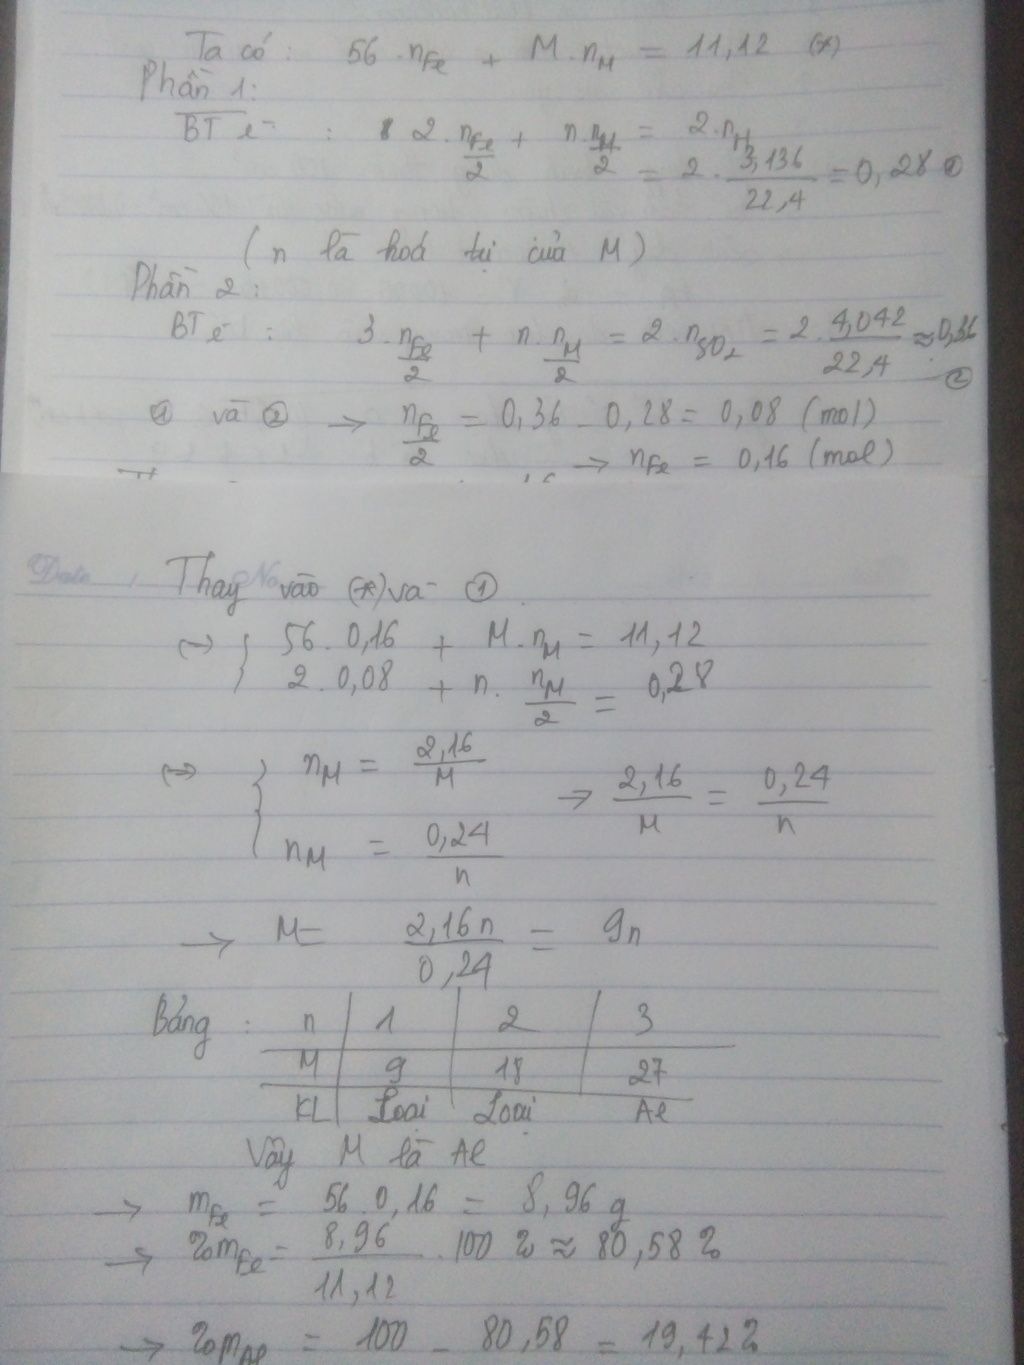 Ta có: 56.nFe + M.nM = 11,12 (*)
Phần 1:
BT e⁻ : 2.nFe/2 + n.nM/2 = 2.nH
= 2.3,136/22,4 = 0,28 ①
(n là hoá trị của M)
Phần 2:
BT e⁻ : 3.nFe/2 + n.nM/2 = 2.nSO2 = 2.4,042/22,4 ≈ 0,36 ②
① và ② → nFe/2 = 0,36 - 0,28 = 0,08 (mol)
→ nFe = 0,16 (mol)
Date No
Thay vào (*) và ①
56.0,16 + M.nM = 11,12
2.0,08 + n.nM/2 = 0,28
nM = 2,16/M
nM = 0,24/n
→ 2,16/M = 0,24/n
→ M = 2,16n/0,24 = 9n
Bảng : n 1 2 3
M 9 18 27
KL Loại Loại Al
Vậy M là Al
→ mFe = 56.0,16 = 8,96 g
→ %mFe = 8,96/11,12 .100% ≈ 80,58%
→ %mAl = 100 - 80,58 = 19,42%